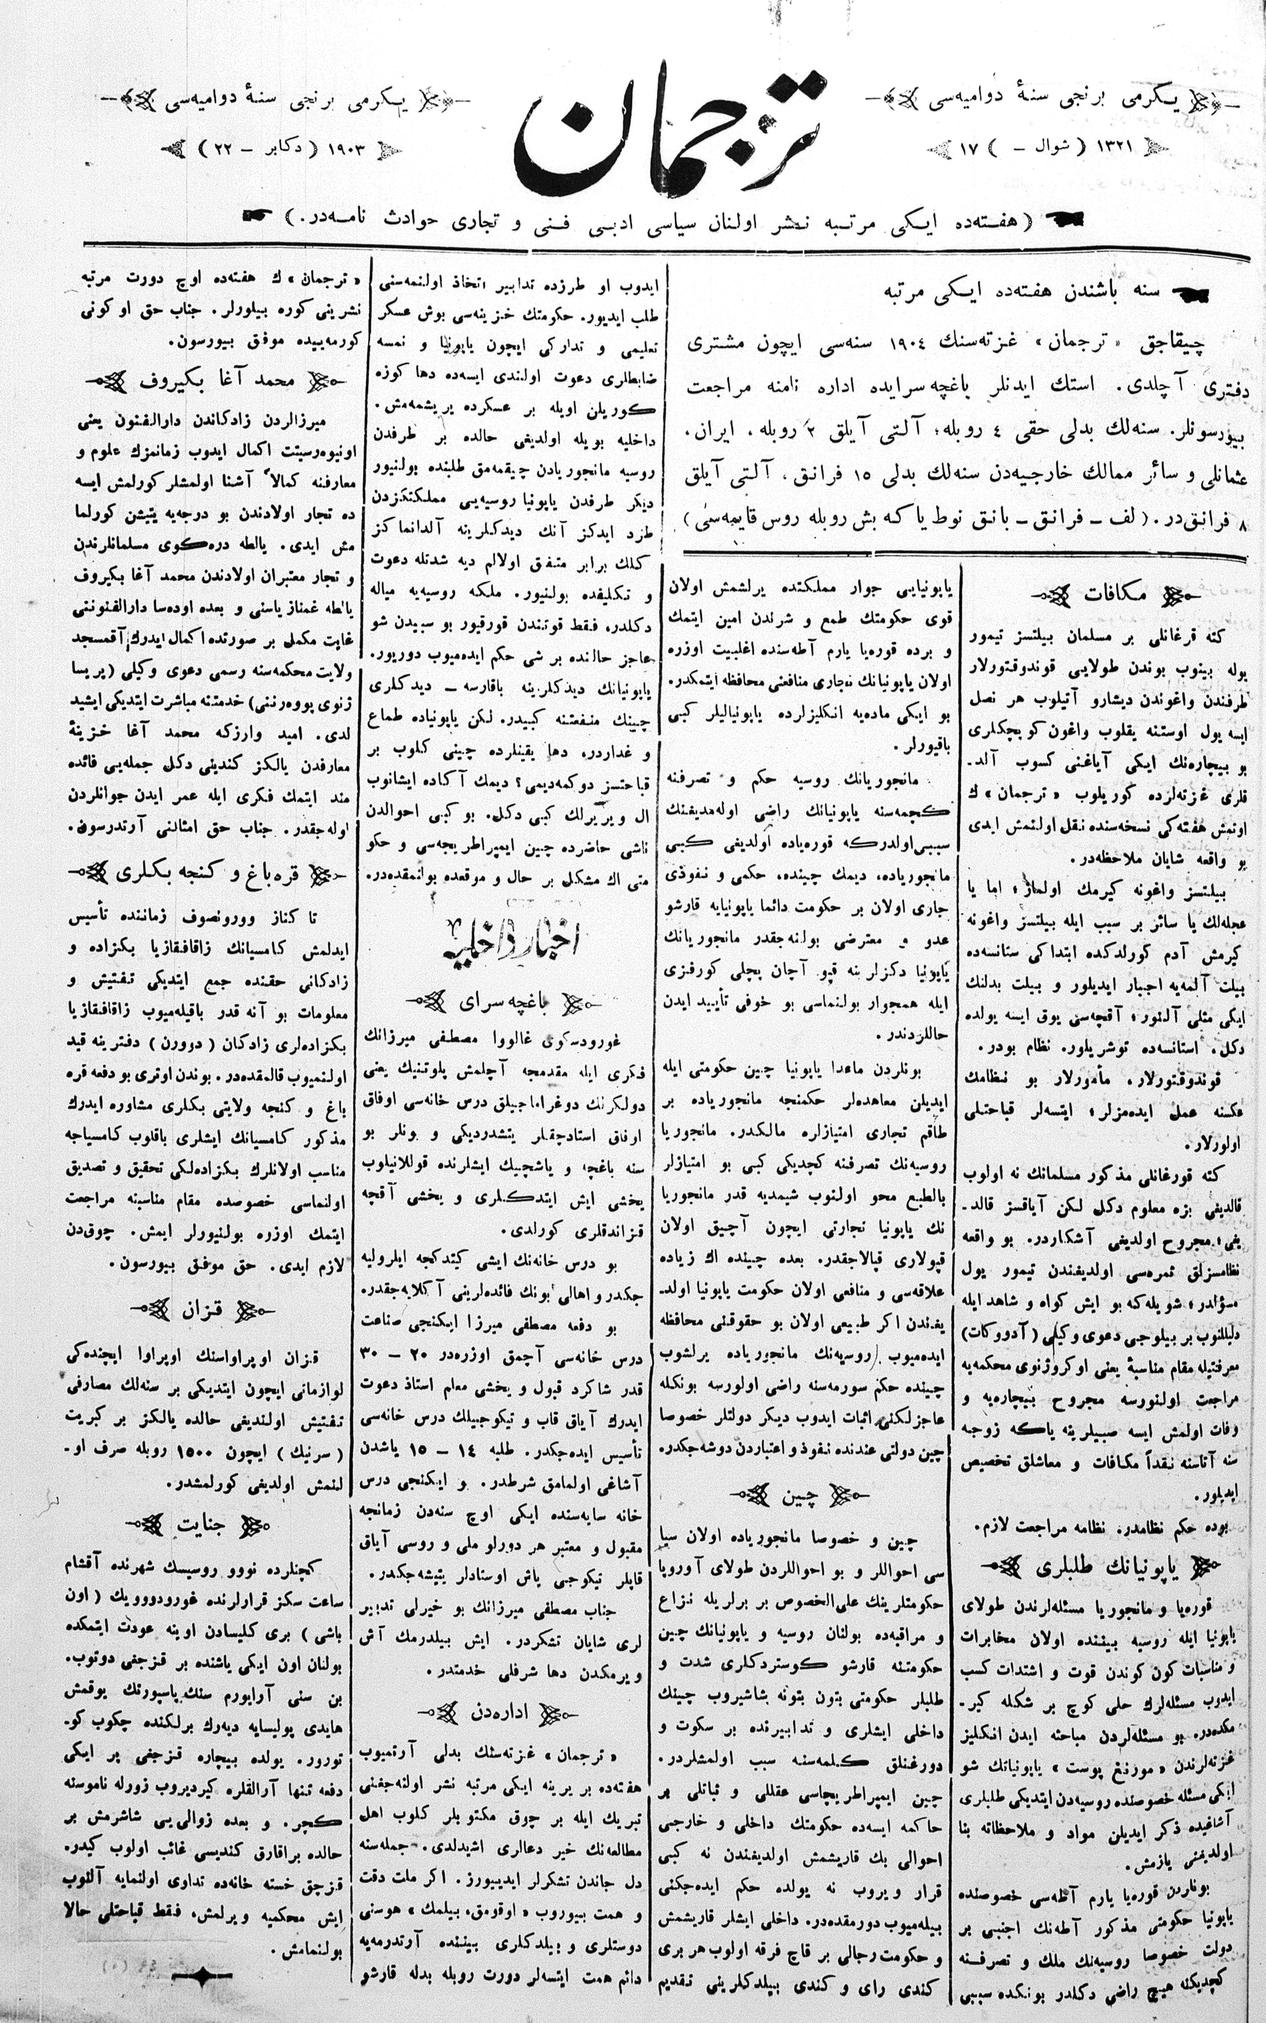 ترجمان
یكرمی برنجی سنهٔ دوامیه‌سی
١٣٢١ (شوال – ) ١٧
یكرمی برنجی سنهٔ دوامیه‌سی
١٩٠٣ (دكابر – ٢٢)
(هفته‌ده ایكی مرتبه نشر اولنان سیاسی ادبی فنی و تجاری حوادث نامه‌در.)
سنه باشندن هفته‌ده ایكی مرتبه
چیقاجق «ترجمان» غزته‌سنك ١٩٠٤ سنه‌سی ایچون مشتری
دفتری آچلدی. استك ایدنلر باغچه سرایده اداره نامنه مراجعت
بیورسونلر. سنه‌لك بدلی حقی ٤ روبله؛ آلتی آیلق ٢ روبله. ایران،
عثمانلی و سائر ممالك خارجیه‌دن سنه‌لك بدلی ١٥ فرانق، آلتی آیلق
٨ فرانق‌در. (لف – فرانق – بانق نوط یا كه بش روبله روس قایمه‌سی)
مكافات
كته قرغانلی بر مسلمان بیلتسز تیمور
یوله بینوب بوندن طولایی قوندوقتورلار
طرفندن واغوندن دیشارو آتیلوب هر نصل
ایسه یول اوستنه یقلوب واغون كوپچكلری
بو بیچاره‌نك ایكی آیاغنی كسوب آلد-
قلری غزته‌لرده كوریلوب «ترجمان»ك
اوتمش هفته‌كی نسخه‌سنده نقل اولنمش ایدی
بو واقعه شایان ملاحظه‌در.
بیلتسز واغونه كیرمك اولماز؛ اما یا
عجله‌لك یا سائر بر سبب ایله بیلتسز واغونه
كیرمش آدم كورلدكده ابتداكی ستانسه‌ده
بیلت آلمه‌یه اجبار ایدیلور و بیلت بدلنك
ایكی مثلی آلنور؛ آقچه‌سی یوق ایسه یولده
دكل، استانسه‌ده توشریلور. نظام بودر.
قوندوقتورلار، مأمورلار بو نظامك
عكسنه عمل ایده‌مزلر؛ ایتسه‌لر قباحتلی
اولورلار.
كته قورغانلی مذكور مسلمانك نه اولوب
قالدیغی بزه معلوم دكل لكن آیاقسز قالد-
یغی؛ مجروح اولدیغی آشكاردر. بو واقعه
نظامسزلق ثمره‌سی اولدیغندن تیمور یول
مسؤلدر؛ شویله‌كه بو ایش كواه و شاهد ایله
دلیللنوب بر بیلوجی دعوی وكیلی (آدووكات)
معرفتیله مقام مناسبهٔ یعنی اوكروژنوی محكمه‌یه
مراجعت اولنورسه مجروح بیچاره‌یه و
وفات اولمش ایسه صبیلرینه یاكه زوجه
سنه آناسنه نقداً مكافات و معاشلق تخصیص
ایدیلور.
بوده حكم نظامدر، نظامه مراجعت لازم.
یاپونیانك طلبلری
قوره‌یا و مانجوریا مسئله‌لرندن طولای
یاپونیا ایله روسیه بیننده اولان مخابرات
و مناسبات كون كوندن قوت و اشتدات كسب
ایدوب مسئله‌لرك حلی كوچ بر شكله كیر-
مكده‌در. بو مسئله‌لردن مباحثه ایدن انكلیز
غزته‌لرندن «مورننغ پوست» یاپونیانك شو
ایكی مسئله خصوصنده روسیه‌دن ایتدیكی طلبلری
آشاغیده ذكر ایدیلن مواد و ملاحظاته بنا
اولدیغنی یازمش.
بونلردن قوره‌یا یارم آطه‌سی خصوصنده
یاپونیا حكومتی مذكور آطه‌نك اجنبی بر
دولت خصوصا روسیه‌نك ملك و تصرفنه
كچدیكنه هیچ راضی دكلدر بونكده سببی
یاپونیایی جوار مملكتده یرلشمش اولان
قوی حكومتك طمع و شرندن امین ایتمك
و برده قوره‌یا یارم آطه‌سنده اغلبیت اوزره
اولان یاپونیانك تجاری منافعنی محافظه ایتمكدر.
بو ایكی ماده‌یه انكلیزلرده یاپونیالیلر كبی
باقیورلر.
مانجوریانك روسیه حكم و تصرفنه
كچمه‌سنه یاپونیانك راضی اوله‌مدیغنك
سببی‌اولدركه قوره‌یاده اولدیغی كبی
مانجوریاده، دیمك چینده، حكمی و نفوذی
جاری اولان بر حكومت دائما یاپونیایه قارشو
عدو و معترضی بولنه‌جقدر مانجوریانك
یاپونیا دكزلرینه قپو آچان پچلی كورفزی
ایله همجوار بولنماسی بو خوفی تأیید ایدن
حاللردندر.
بونلردن ماعدا یاپونیا چین حكومتی ایله
ایدیلن معاهده‌لر حكمنجه مانجوریاده بر
طاقم تجاری امتیازلره مالكدر. مانجوریا
روسیه‌نك تصرفنه كچدیكی كبی بو امتیازلر
بالطبع محو اولنوب شیمدیه قدر مانجوریا
نك یاپونیا تجارتی ایچون آچیق اولان
قپولاری قپالاجقدر. بعده چینده اك زیاده
علاقه‌سی و منافعی اولان حكومت یاپونیا اولد-
یغندن اكر طبیعی اولان بو حقوقنی محافظه
ایده‌میوب روسیه‌نك مانجوریاده یرلشوب
چینده حكم سورمه‌سنه راضی اولورسه بونكله
عاجزلكنی اثبات ایدوب دیكر دولتلر خصوصا
چین دولتی عندنده نفوذ و اعتباردن دوشه‌جكدر.
چین
چین و خصوصا مانجوریاده اولان سیا
سی احواللر و بو احواللردن طولای آوروپا
حكومتلرینك علی‌الخصوص بر برلریله نزاع
و مراقبه‌ده بولنان روسیه و یاپونیانك چین
حكومتنه قارشو كوستردكلری شدت و
طلبلر حكومتی بتون بتونه شاشیروب چینك
داخلی ایشلری و تدابیرنده بر سكوت و
دورغنلق كلمه‌سنه سبب اولمشلردر.
چین ایمپراطریچاسی عقللی و ثباتلی بر
حاكمه ایسه‌ده حكومتك داخلی و خارجی
احوالی بك قاریشمش اولدیغندن نه كبی
قرار ویروب نه یولده حكم ایده‌جكنی
بیله‌میوب دورمقده‌در. داخلی ایشلر قاریشمش
و حكومت رجالی بر قاچ فرقه اولوب هر بری
كندی رای و كندی بیلدكلرینی تقدیم
ایدوب او طرزده تدابیر اتخاذ اولنمه‌سنی
طلب ایدیور. حكومتك خزینه‌سی بوش عسكر
تعلیمی و تداركی ایچون یاپونیا و نمسه
ضابطلری دعوت اولندی ایسه‌ده دها كوزه
كوریلن اویله بر عسكرده یریشمه‌مش.
داخلیه بویله اولدیغی حالده بر طرفدن
روسیه مانجوریادن چیقمه‌مق طلبنده بولنیور
دیكر طرفدن یاپونیا روسیه‌یی مملكتكزدن
طرد ایدكز آنك دیدكلرینه آلدانماكز
كلك برابر متفق اولالم دیه شدتله دعوت
و تكلیفده بولنیور. ملكه روسیه‌یه میاله
دكلدر، فقط قوتندن قورقیور بو سببدن شو
عاجز حالنده بر شی حكم ایده‌میوب دوریور.
یاپونیانك دیدكلرینه باقارسه – دیدكلری
چینك منفعتنه كبیدر، لكن یاپونیاده طماع
و غداردر، دها یقینلرده چینی كلوب بر
قباحتسز دوكمه‌دیمی؟ دیمك آكاده ایشانوب
ال ویریرلك كبی دكل. بو كبی احوالدن
ناشی حاضرده چین ایمپراطریچه‌سی و حكو
متی اك مشكل بر حال و موقعده بولنمقده‌در.
اخبار داخلیه
باغچه سرای
غورودسكوی غالووا مصطفی میرزانك
فكری ایله مقدمجه آچلمش پلوتنیك یعنی
دولكرنك دوغراماجیلق درس خانه‌سی اوفاق
اوفاق استادچقلر یتشدردیكی و بونلر بو
سنه باغچه و یاشچیك ایشلرنده قوللانیلوب
یخشی ایش ایتدكلری و یخشی آقچه
قزاندقلری كورلدی.
بو درس خانه‌نك ایشی كیتدكجه ایلرولیه
جكدر و اهالی بونك فائده‌لرینی آكلایه‌جقدر.
بو دفعه مصطفی میرزا ایكنجی صناعت
درس خانه‌سی آچمق اوزره‌در ٢٠ – ٣٠
قدر شاكرد قبول و یخشی معلم استاذ دعوت
ایدرك آیاق قاب و تیكوجیلك درس خانه‌سی
تأسیس ایده‌جكدر. طلبه ١٤ – ١٥ یاشدن
آشاغی اولمامق شرطدر. و ایكنجی درس
خانه سایه‌سنده ایكی اوچ سنه‌دن زمانجه
مقبول و معتبر هر دورلو ملی و روسی آیاق
قاپلر تیكوجی یاش اوستادلر یتیشه‌جكدر.
جناب مصطفی میرزانك بو خیرلی تدبیر
لری شایان تشكردر. ایش بیلدرمك آش
ویرمكدن دها شرفلی خدمتدر.
اداره‌دن
«ترجمان» غزته‌سنك بدلی آرتمیوب
هفته‌ده بر یرینه ایكی مرتبه نشر اولنه‌جغنی
تبریك ایله بر چوق مكتوبلر كلوب اهل
مطالعه‌نك خیر دعالری اشیدلدی. جمله‌سنه
دل جاندن تشكرلر ایدییورز. اكر ملت دقت
و همت بیوروب «اوقومق، بیلمك» هوسنی
دوستلری و بیلدكلری بیننده آرتدرمه‌یه
دائم همت ایتسه‌لر دورت روبله بدله قارشو
«ترجمان»ك هفته‌ده اوچ دورت مرتبه
نشرینی كوره بیلورلر. جناب حق او كونی
كورمه‌ییده موفق بیورسون.
محمد آغا بكیروف
میرزالردن زادكاندن دارالفنون یعنی
اونیوه‌رسیتت اكمال ایدوب زمانمزك علوم و
معارفنه كمالاً آشنا اولمشلر كورلمش ایسه
ده تجار اولادندن بو درجه‌یه یتیشن كورلما
مش ایدی. یالطه دره‌كوی مسلمانلرندن
و تجار معتبران اولادندن محمد آغا بكیروف
یالطه غمنازیاسنی و بعده اوده‌سا دارالفنوننی
غایت مكمل بر صورتده اكمال ایدرك آقمسجد
ولایت محكمه‌سنه رسمی دعوی وكیلی (پریسا
ژنوی پووه‌رننی) خدمتنه مباشرت ایتدیكی ایشید
لدی. امید وارزكه محمد آغا خزینهٔ
معارفدن یالكز كندینی دكل جمله‌یی فائده
مند ایتمك فكری ایله عمر ایدن جوانلردن
اوله‌جقدر. جناب حق امثالنی آرتدرسون.
قره‌باغ و كنجه بكلری
تا كناز وورونصوف زماننده تأسیس
ایدلمش كامسیانك زاقافقازیا بكزاده و
زادكانی حقنده جمع ایتدیكی تفتیش و
معلومات بو آنه قدر باقیله‌میوب زاقافقازیا
بكزاده‌لری زادكان (دوورن) دفترینه قید
اولنمیوب قالمقده‌در. بوندن اوتری بو دفعه قره
باغ و كنجه ولایتی بكلری مشاوره ایدرك
مذكور كامسیانك ایشلری باقلوب كامسیاجه
مناسب اولانلرك بكزاده‌لكی تحقیق و تصدیق
اولنماسی خصوصده مقام مناسبنه مراجعت
ایتمك اوزره بولنیورلر ایمش. چوق‌دن
لازم ایدی. حق موفق بیورسون.
قزان
قزان اوپراواسنك اوپراوا ایچنده‌كی
لوازمانی ایچون ایتدیكی بر سنه‌لك مصارفی
تفتیش اولندیغی حالده یالكز بر كبریت
(سرنیك) ایچون ١٥٠٠ روبله صرف او-
لنمش اولدیغی كورلمشدر.
جنایت
كچنلرده نووو روسیسك شهرنده آقشام
ساعت سكز قرارلرنده غورودوووییك (اون
باشی) بری كلیسادن اوینه عودت ایتمكده
بولنان اون ایكی یاشنده بر قزجغی دوتوب.
بن سنی آرایورم سنك پاسپورتك یوقمش
هایدی پولیسایه دیه‌رك برلكنده چكوب كو-
تورور. یولده بیچاره قزجغی بر ایكی
دفعه تنها آرالقلره كیردیروب زورله ناموسنه
كچر. و بعده زوالی‌یی شاشرمش بر
حالده براقارق كندیسی غائب اولوب كیدر.
قزجق خسته خانه‌ده تداوی اولنمایه آلنوب
ایش محكمیه ویرلمش، فقط قباحتلی حالا
بولنمامش.